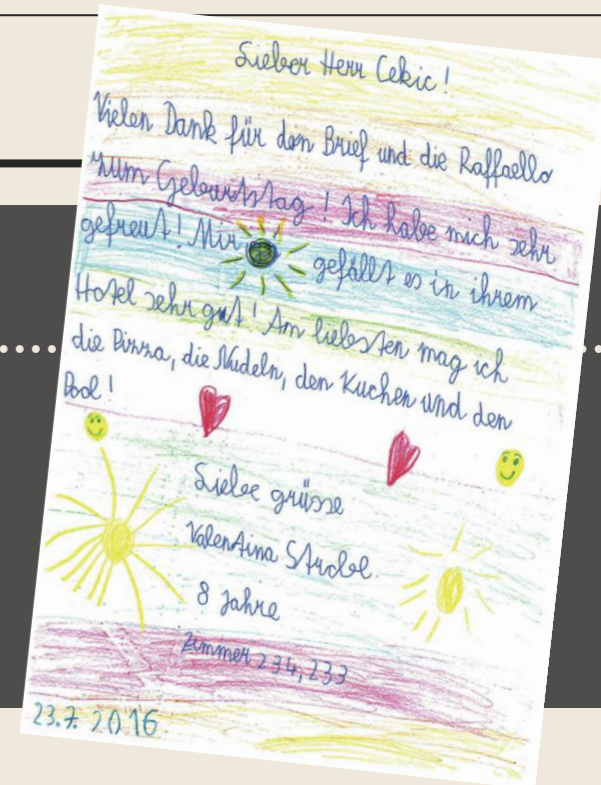 Lieber Herr Cekic!
Vielen Dank für den Brief und die Raffaello
zum Geburtstag! Ich habe mich sehr
gefreut! Mir gefällt es in ihrem
Hotel sehr gut! Am liebsten mag ich
die Pizza, die Nudeln, den Kuchen und den
Pool!
Liebe grüsse
Valentina Strobl
8 Jahre
Zimmer 234, 233
23.7.2016